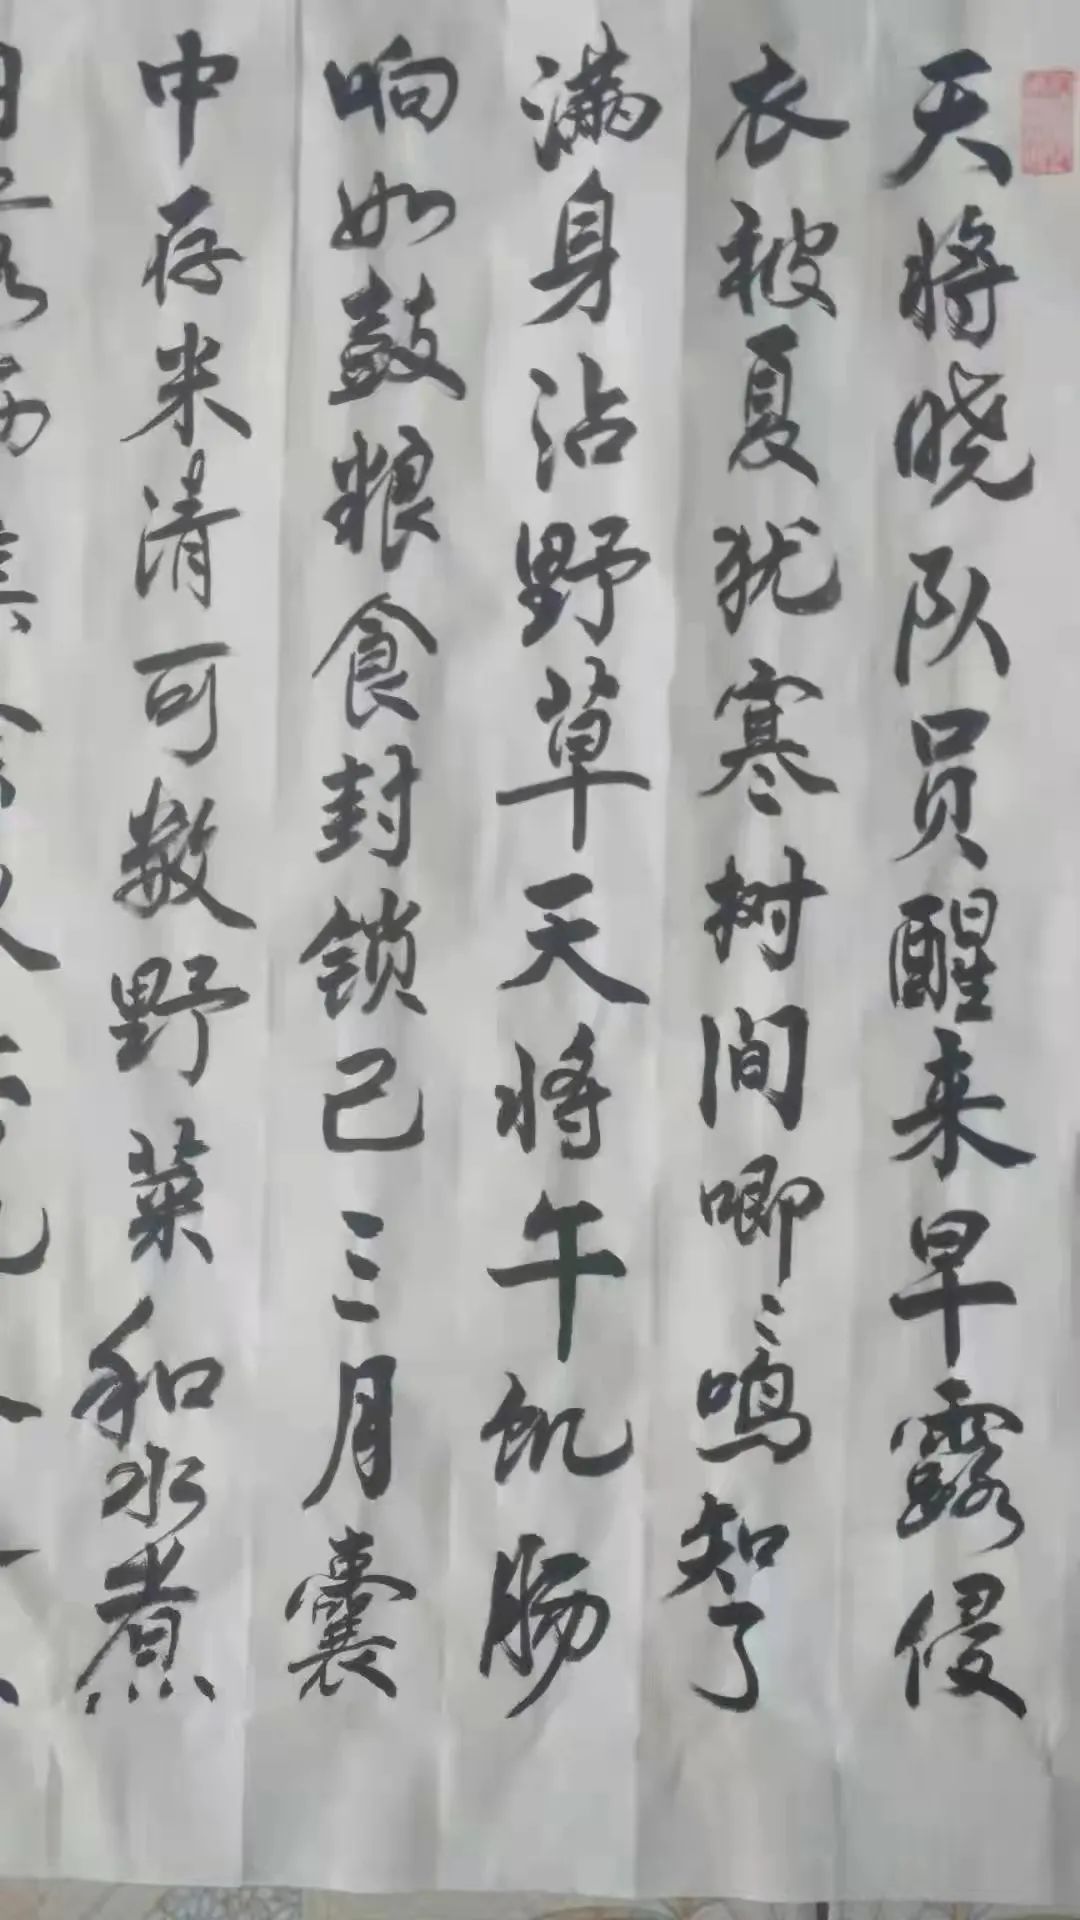 天将晓队员醒来早露侵
衣被夏犹寒树间唧〻鸣知了
满身沾野草天将午饥肠
响如鼓粮食封锁已三月囊
中存米清可数野菜和水煮